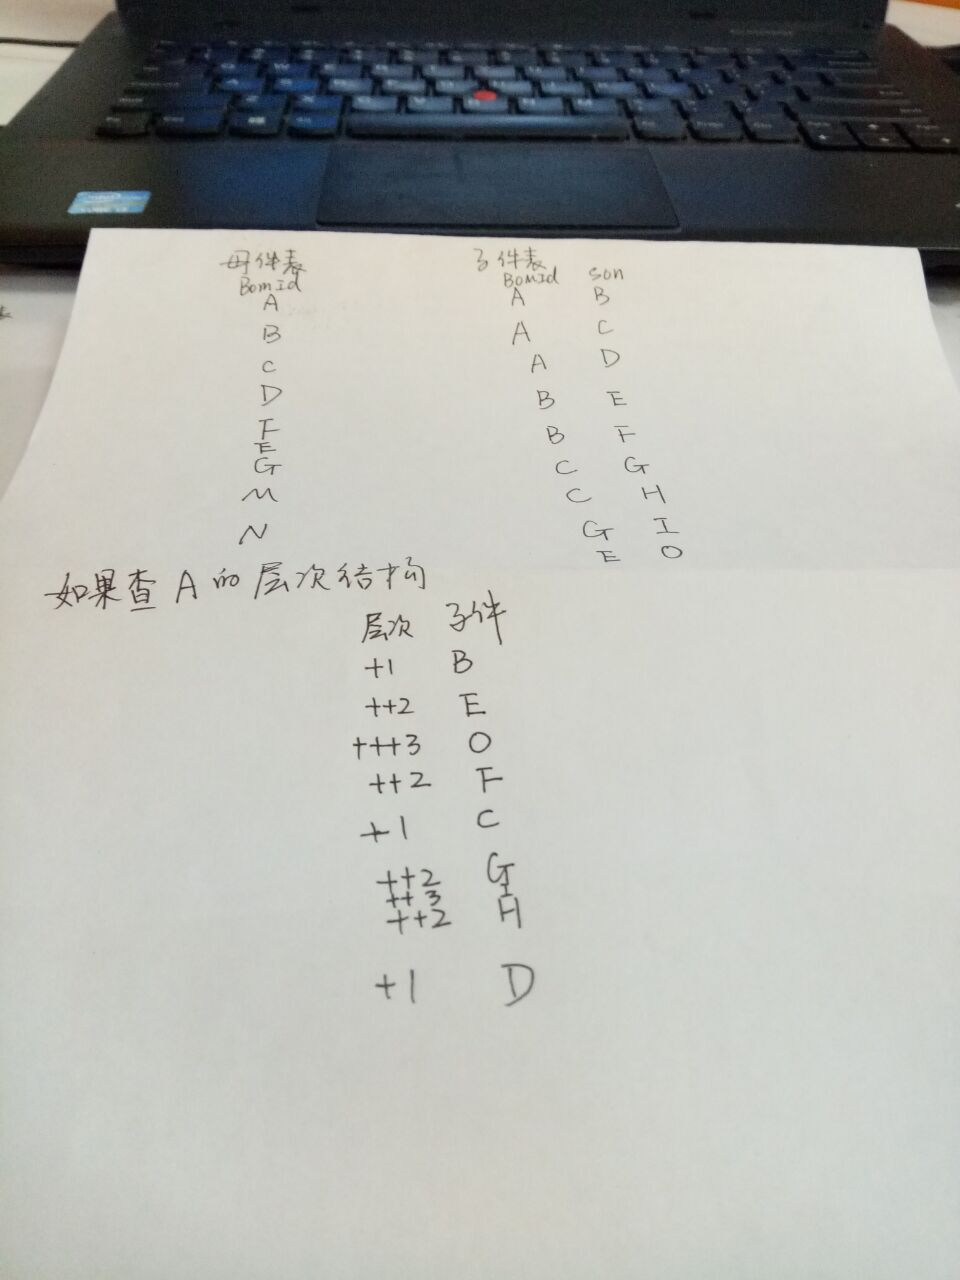 母件表
BomId
A
B
C
D
F
E
G
M
N
子件表
BomId son
A B
A C
A D
B E
B F
C G
C H
G I
E O
如果查A的层次结构
层次 子件
+1 B
++2 E
+++3 O
++2 F
+1 C
++2 G
++3 I
++2 H
+1 D